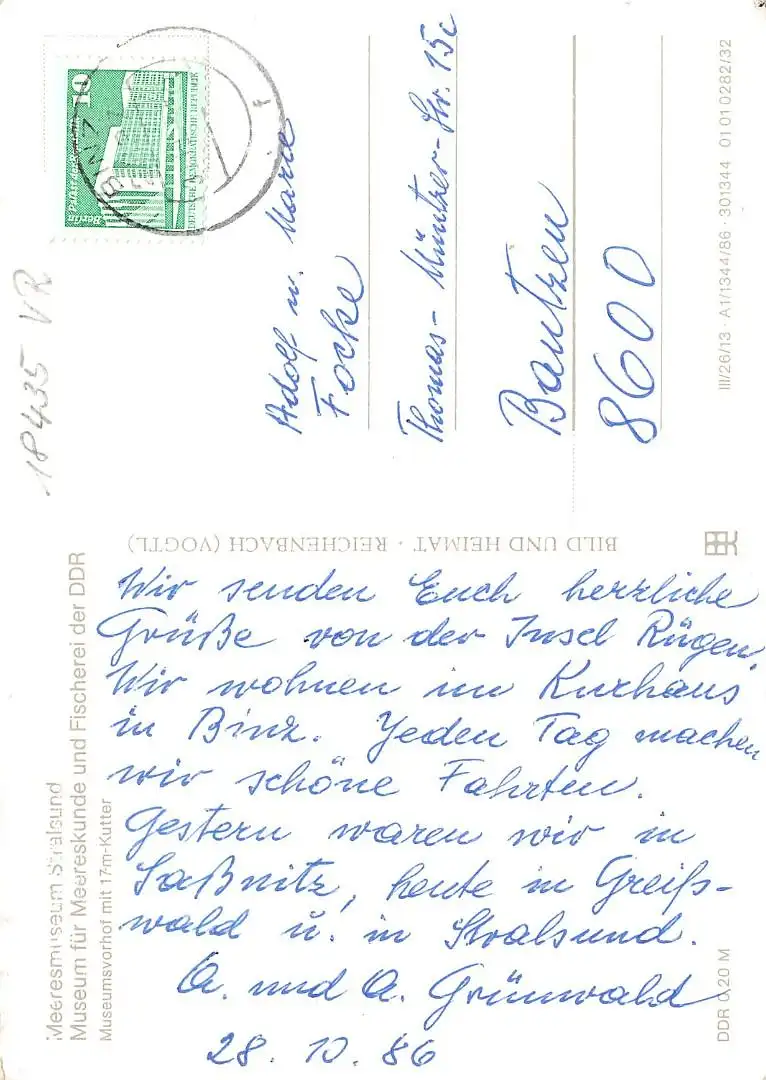 Wir senden Euch herzliche
Grüße von der Insel Rügen.
Wir wohnen im Kurhaus
in Binz. Jeden Tag machen
wir schöne Fahrten.
Gestern waren wir in
Saßnitz, heute in Greifs-
wald u. in Stralsund.
A. und A. Grünwald
28. 10. 86
Adolf u. Marie
Focke
Thomas-Müntzer-Str. 15c
Bautzen
8600
18435 VR
10
Berlin
Palast der Republik
DEUTSCHE DEMOKRATISCHE REPUBLIK
BINZ
Meeresmuseum Stralsund
Museum für Meereskunde und Fischerei der DDR
Museumsvorhof mit 17-m-Kutter
BILD UND HEIMAT · REICHENBACH (VOGTL)
III/26/13 · A1/1344/86 · 301344 01 01 0282/32
DDR 0,20 M